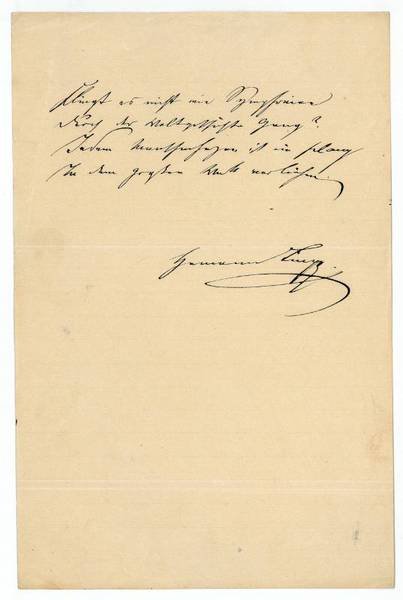 Klingt es nicht wie Symphonien
Durch der Weltgeschichte Gang?
Jedem Menschenherzen ist ein Klang
In dem großen Werk verliehen.
Hermann Lingg.